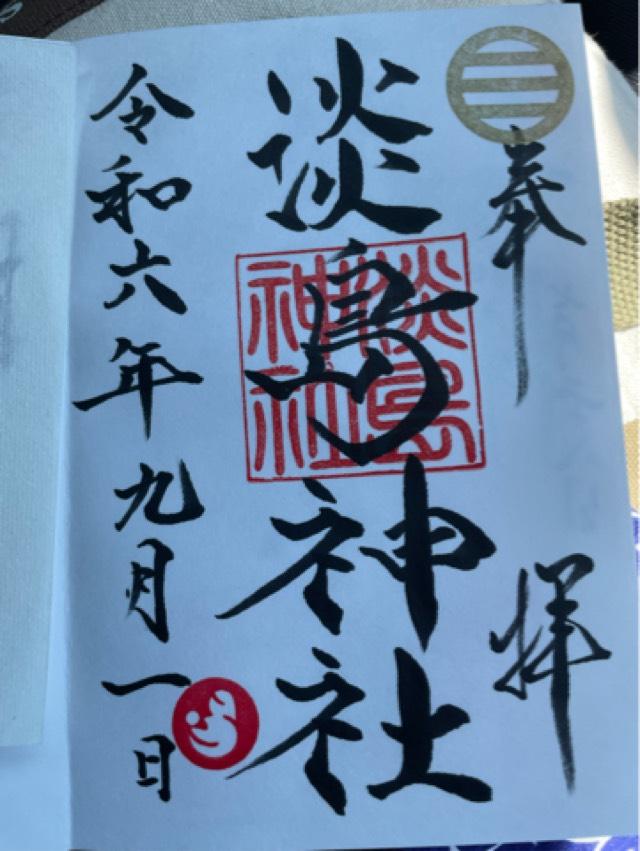 奉拝
淡島神社
淡島神社
令和六年九月一日